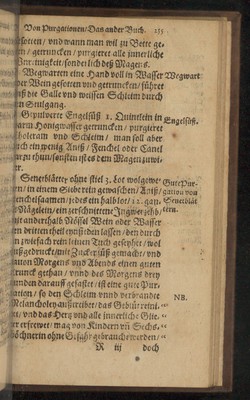 Von Purgationen/Das ander Buch. 133
gesotten/ vnd wann man wil zu Bette ge-
/ getruncken/ purgiret alle innerliche
nigkeit/ sonderlich deß Magens.
Wegwarten eine Hand voll in Wasser Wegwart
der Wein gesotten vnd getruncken/ führet
auß die Galle vnd weissen Schleim durch
den Stulgang.
Gepulverte Engelsüß 1. Quintlein in Engelsüß.
warm Honigwasser getruncken/ purgieret
Choleram vnd Schleim/ man soll aber
auch ein wenig Aniß/ Fenchel oder Canel
zu thun/ sonsten ist es dem Magen zuwi-
der.
Senetblätter ohne stiel 3. Lot wolgewe- Gute Pur-
in einem Siebe rein gewaschen/ Aniß/ gation von
Fenchelsaamen/ jedes ein halb lot/ 12. gantz Senetblät-
Nägelein/ ein zerschnittene Ingwerzehb/ tern.
mit anderhalb Nössel Wein oder Wasser
den dritten theil einsieden lassen/ den durch
ein zwiefach rein leinen Tuch geseyhet/ wol
außgedruckt/ mit Zucker süß gemacht/ vnd
davon Morgens vnd Abends einen guten
Trunck gethan/ vnnd des Morgens drey
Stunden darauff gefastet/ ist eine gute Pur-
gation/ so den Schleim vnnd verbrandte NB.
Melancholey außtreibet/ das Geblüt reini-
get/ vnd das Hertz vnd alle innerliche Glie-
der erfrewet/ mag von Kindern vnd Sechs-
wöchnerin ohne Gefahr gebraucht werden/
R iij doch